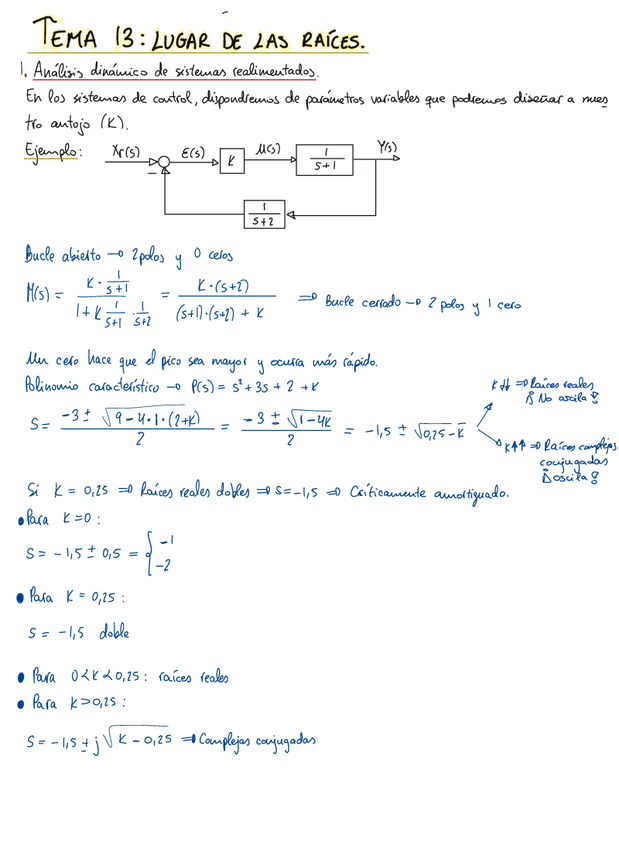 TEMA 13: LUGAR DE LAS RAÍCES.
1. Análisis dinámico de sistemas realimentados.
En los sistemas de control, dispondremos de parámetros variables que podremos diseñar a nues
tro antojo (K).
Ejemplo: Xr(s) E(s) K U(s) 1/(s+1) Y(s)
−
1/(s+2)
Bucle abierto → 2 polos y 0 ceros
M(s) = (K · 1/(s+1)) / (1 + K 1/(s+1) · 1/(s+2)) = K·(s+2) / ((s+1)·(s+2) + K) ⇒ Bucle cerrado → 2 polos y 1 cero
Un cero hace que el pico sea mayor y ocurra más rápido.
Polinomio característico → P(s) = s² + 3s + 2 + K
S = (−3 ± √(9 − 4·1·(2+K))) / 2 = (−3 ± √(1 − 4K)) / 2 = −1,5 ± √(0,25 − K)
K↓↓ ⇒ Raíces reales
¡¡ No oscila !!
K↑↑ ⇒ Raíces complejas
conjugadas
¡¡ oscila !!
Si K = 0,25 ⇒ Raíces reales dobles ⇒ S = −1,5 ⇒ Críticamente amortiguado.
• Para K=0:
S = −1,5 ± 0,5 = { −1
−2
• Para K = 0,25:
S = −1,5 doble
• Para 0<K<0,25: raíces reales
• Para K>0,25:
S = −1,5 ± j√(K − 0,25) ⇒ Complejas conjugadas